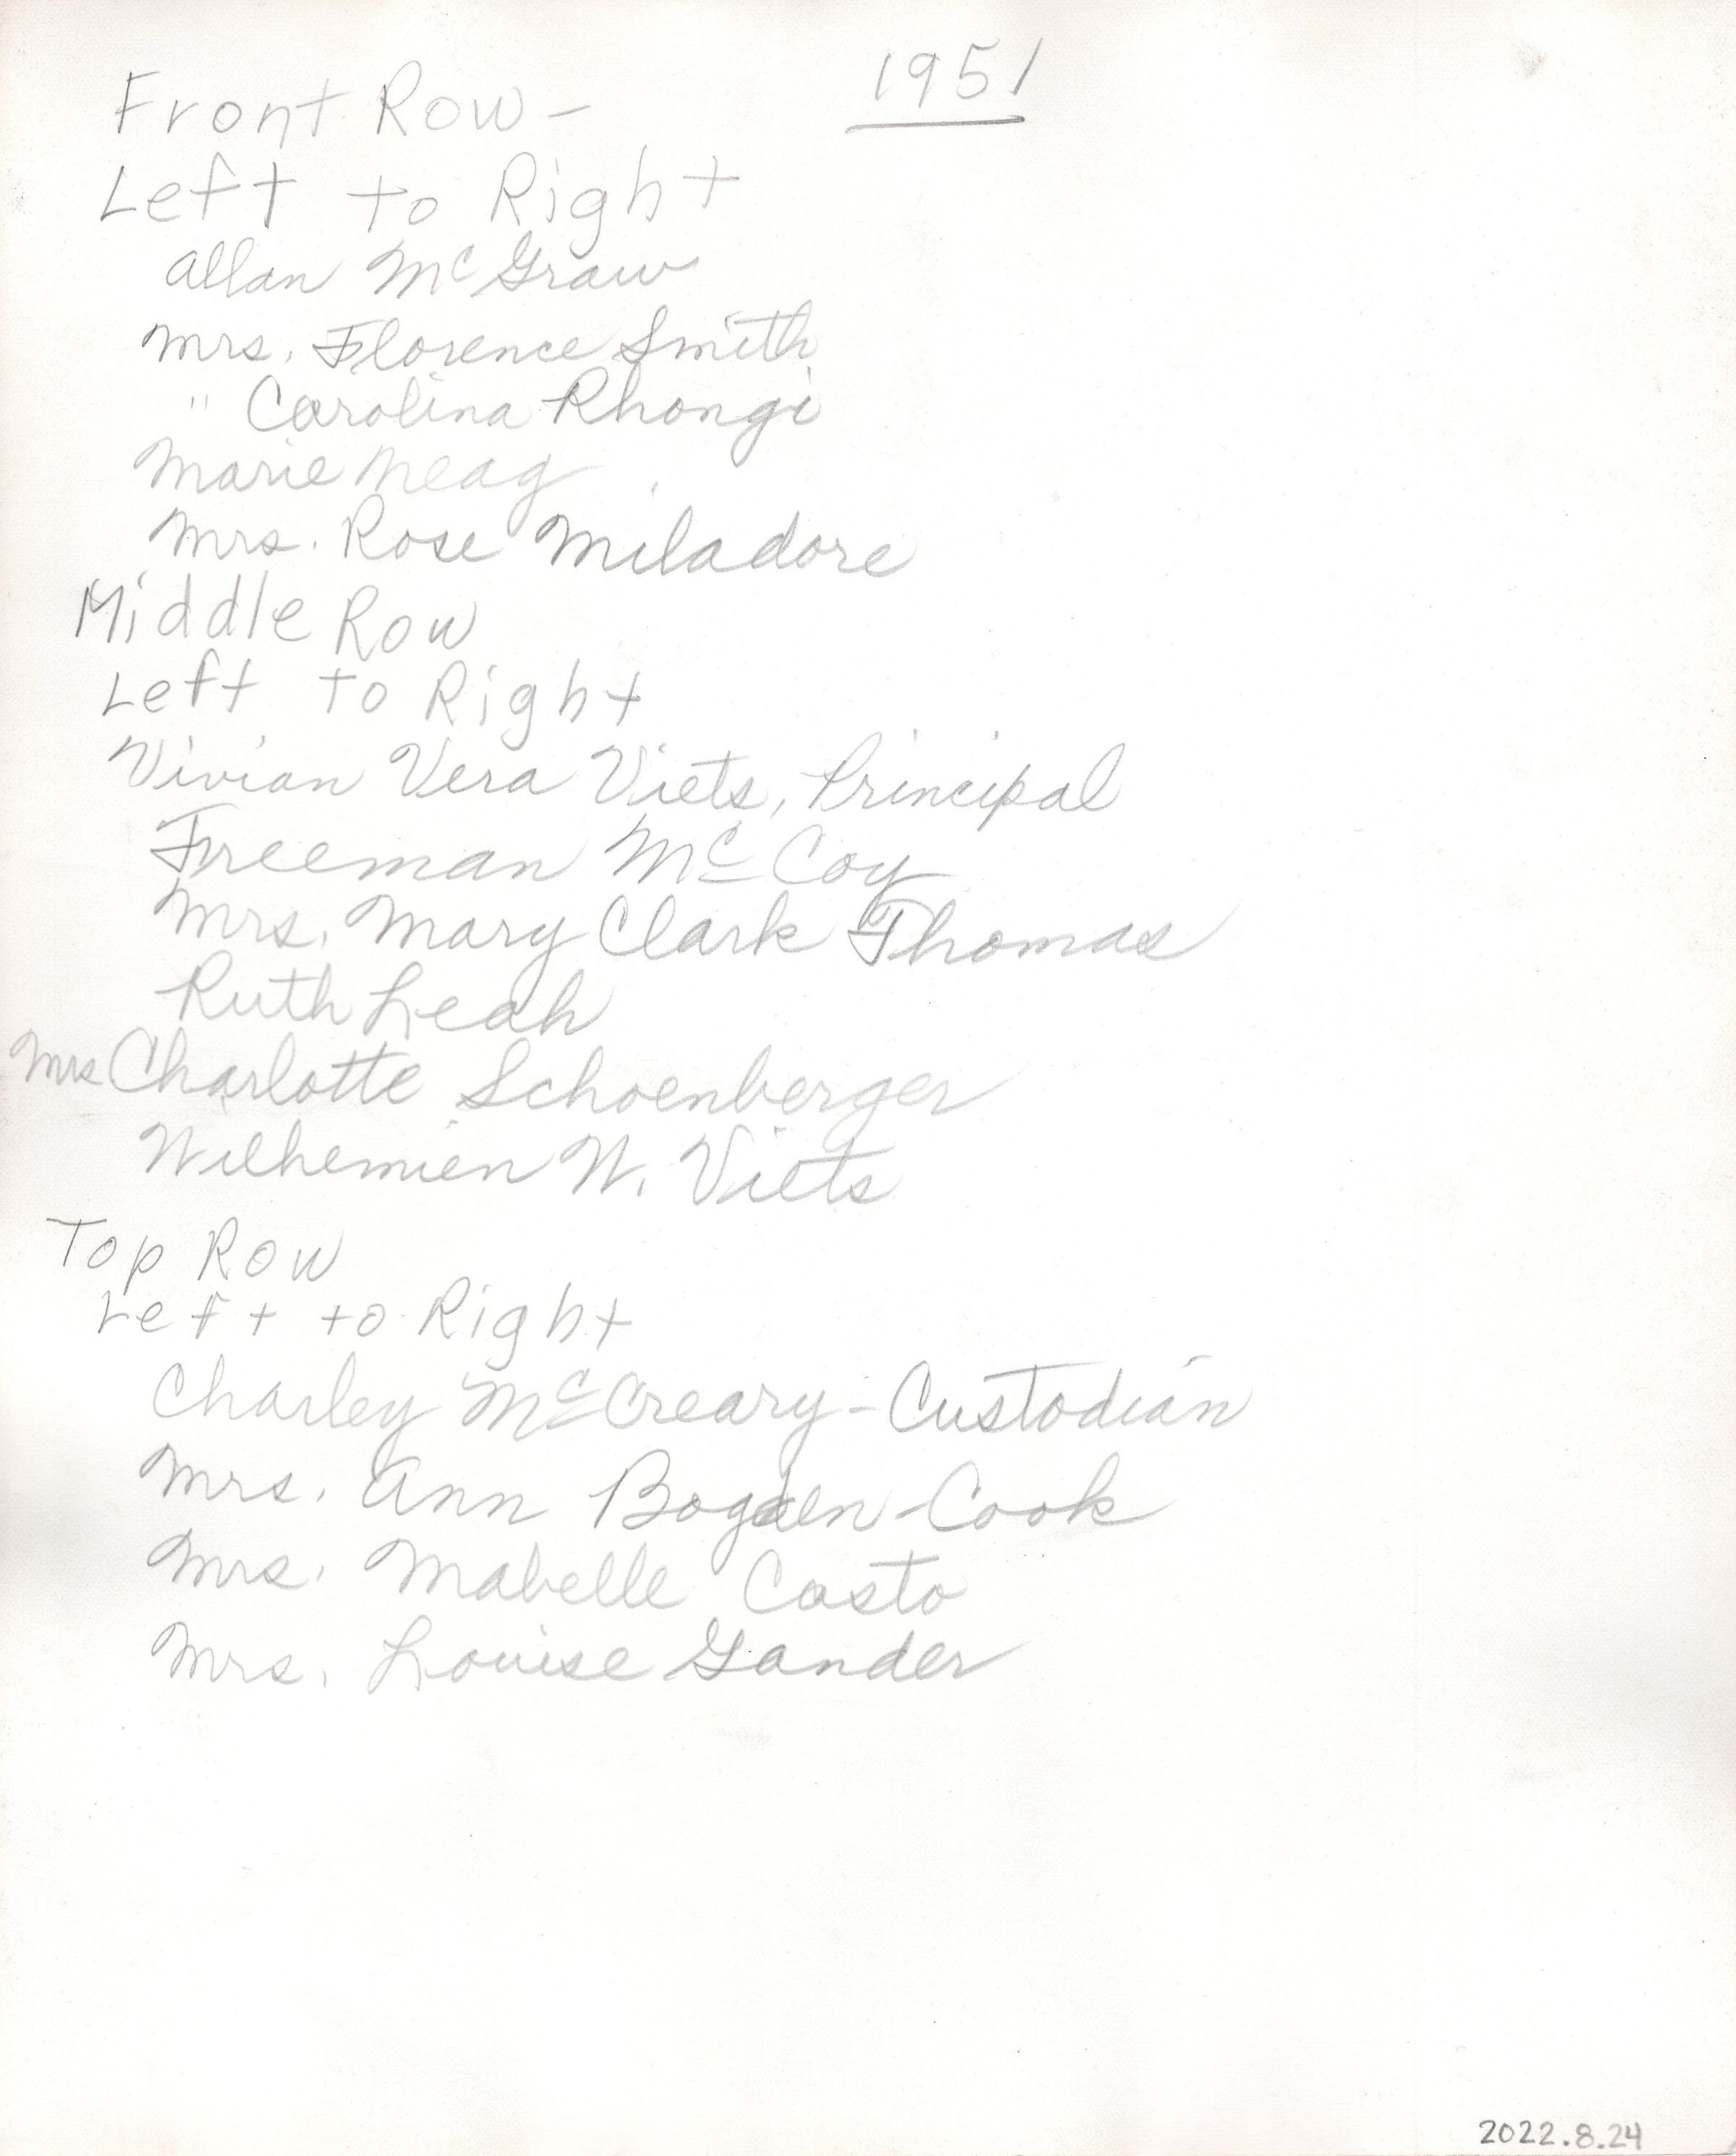 1951
Front Row -
Left to Right
Allan McGraw
Mrs. Florence Smith
" Carolina Rhongi
Marie Neag
Mrs. Rose Miladore
Middle Row
Left to Right
Vivian Vera Viets, Principal
Freeman McCoy
Mrs. Mary Clark Thomas
Ruth Leah
Mrs Charlotte Schoenberger
Wilhemien W. Viets
Top Row
Left to Right
Charley McCreary - Custodian
Mrs. Ann Bogden - Cook
Mrs. Mabelle Casto
Mrs. Louise Gander
2022.8.24